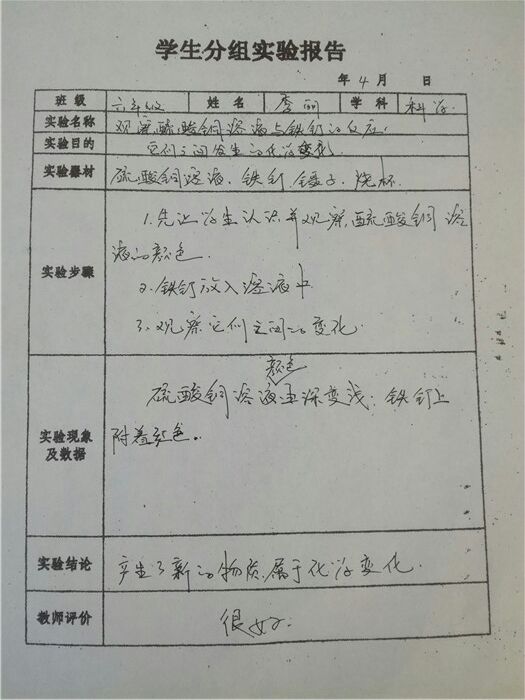 学生分组实验报告
年 4 月 日
班级 六年级 姓名 李丽 学科 科学
实验名称 观察硫酸铜溶液与铁钉的反应
实验目的 它们之间发生的化学变化
实验器材 硫酸铜溶液、铁钉、镊子、烧杯
实验步骤
1.先让学生认识并观察,硫酸铜溶
液的颜色.
2.铁钉放入溶液中
3.观察它们之间的变化.
实验现象及数据
颜色
硫酸铜溶液由深变浅;铁钉上
附着红色。
实验结论 产生了新的物质,属于化学变化.
教师评价 很好.